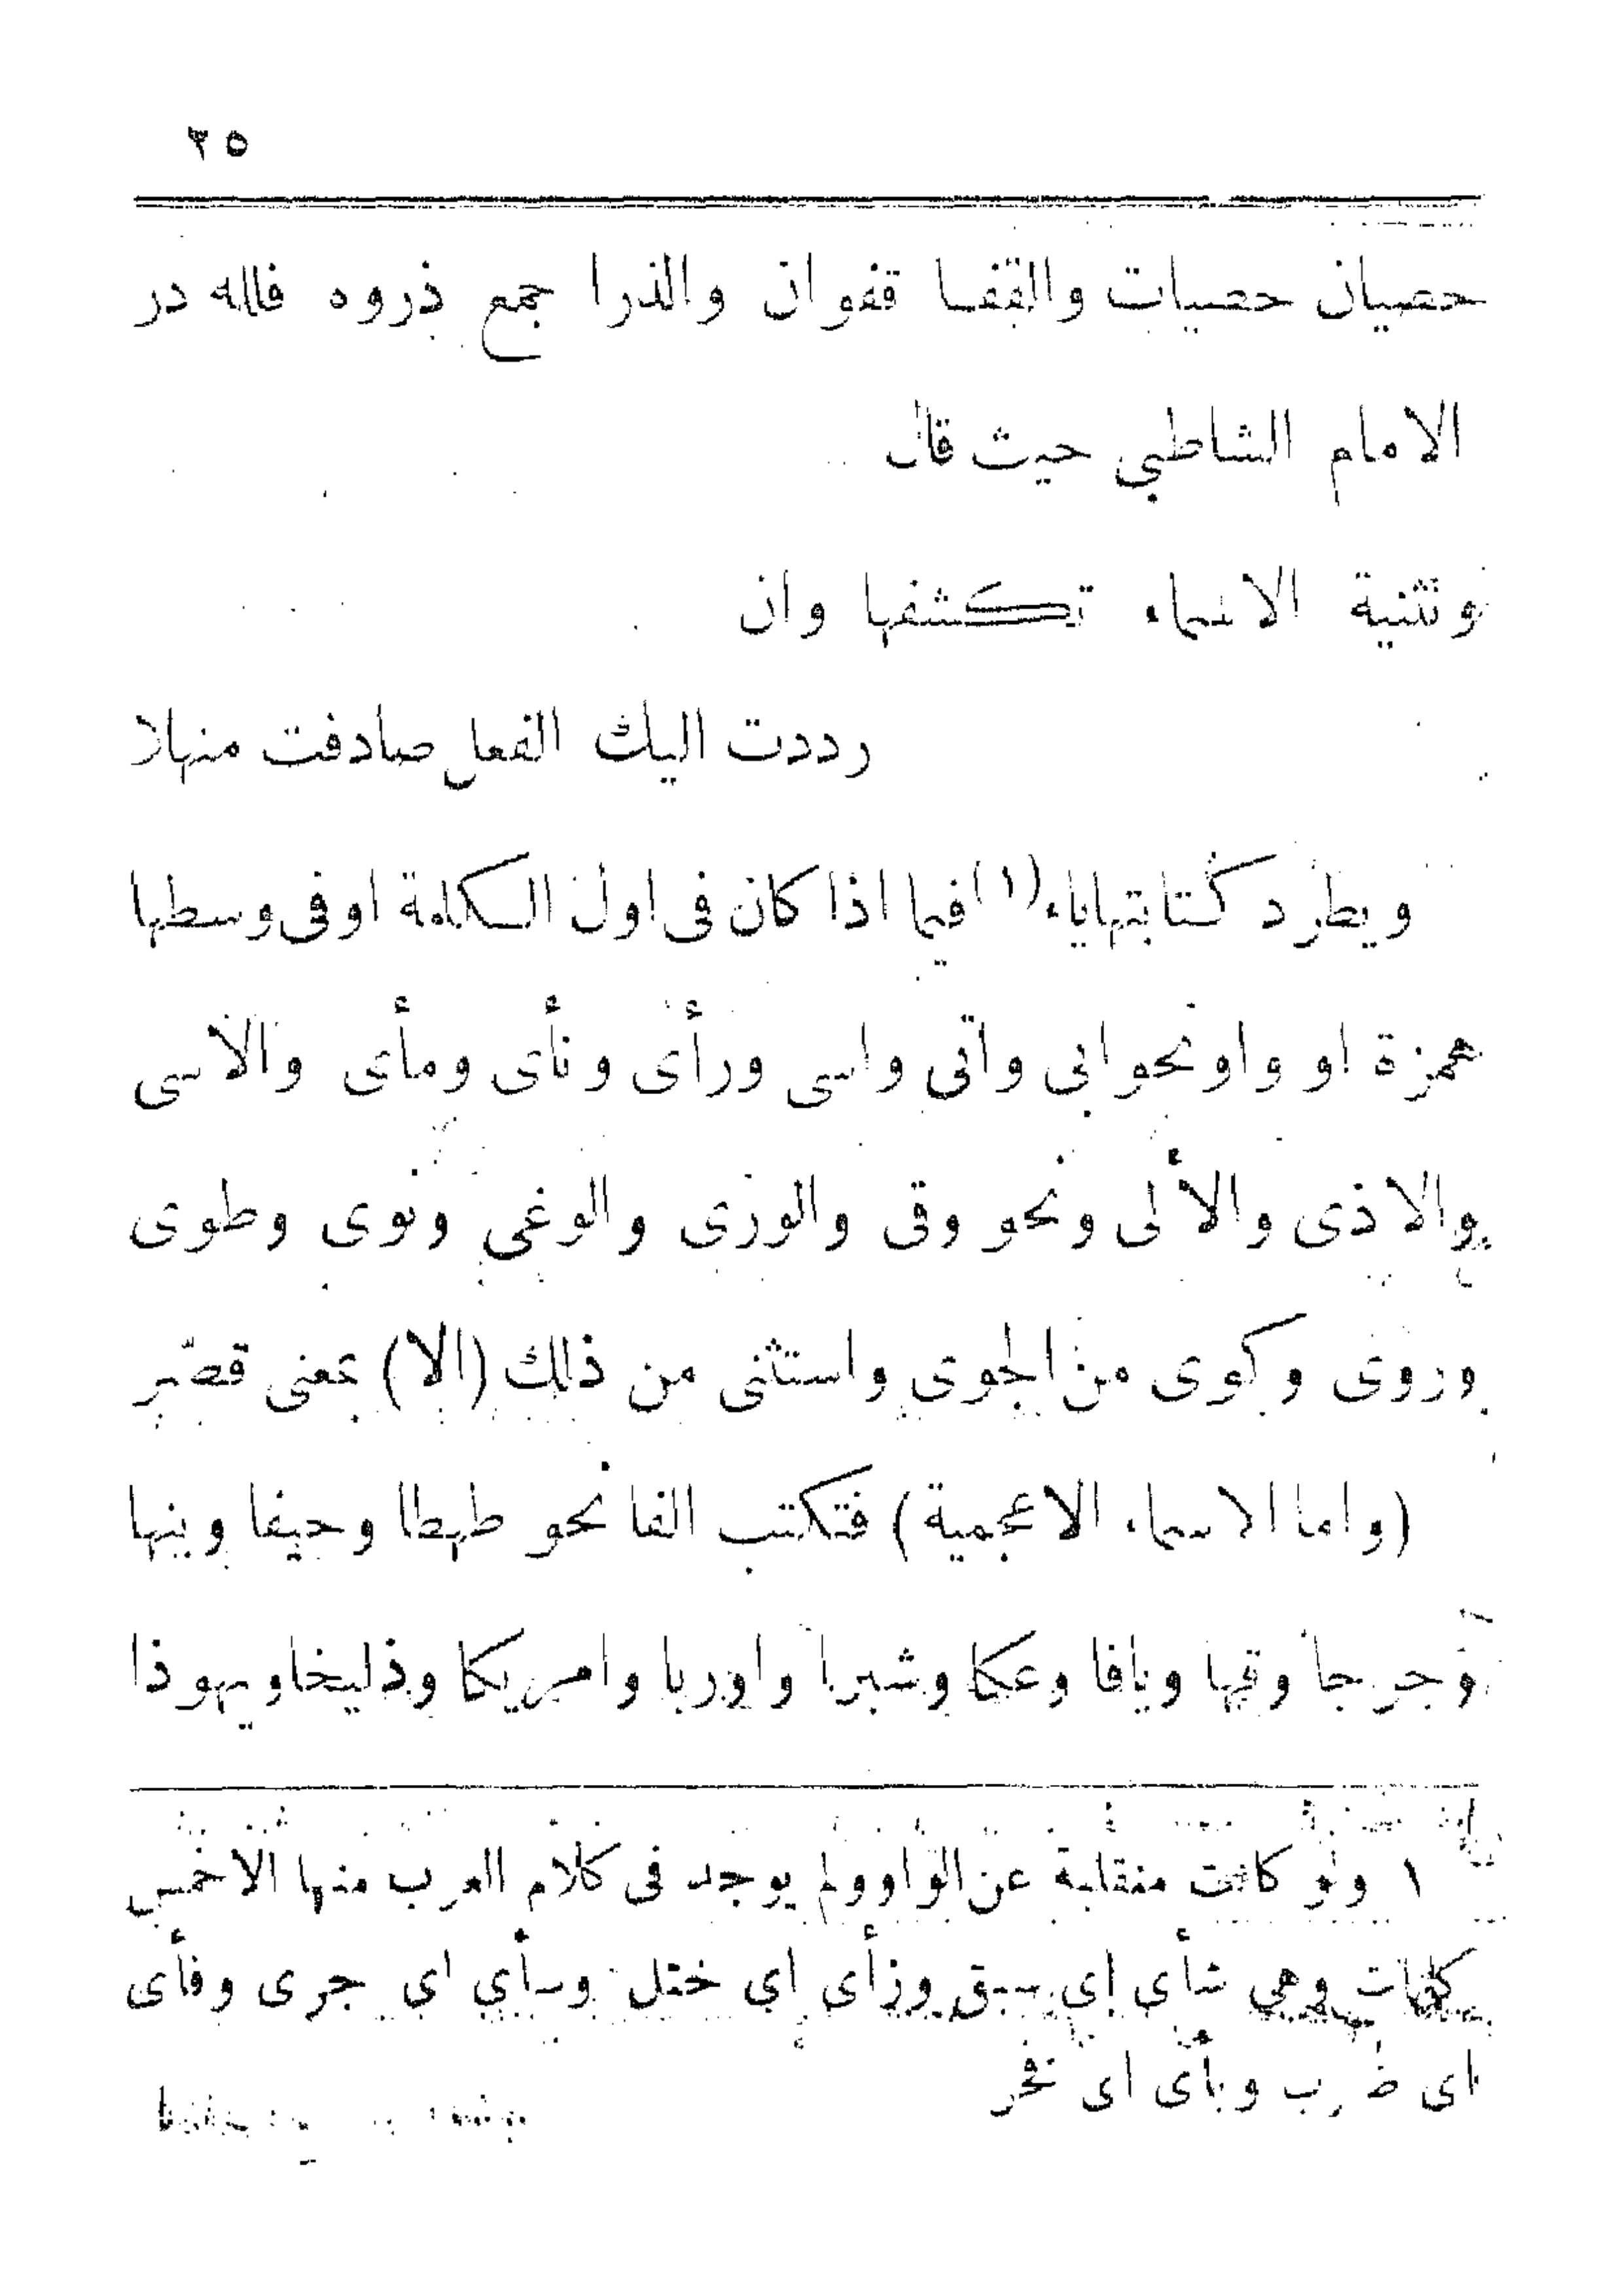 ٢٥
حصيان حصيات والقفا قفوان والذرا جمع ذروه فلله در
الامام الشاطبي حيث قال
وتثنية الاسماء تكشفها وان
رددت اليك الفعل صادفت منهلا
ويطرد كتابتها ياء (١) فيما اذا كان فى اول الكلمة او فى وسطها
همزة او واو نحو ابى وأتى واسى ورأى ونأى ومأى والاسى
والاذى والألى ونحو وقى والورى والوغى ونوى وطوى
وروى وكوى من الجوى واستثنى من ذلك (الا) بمعنى قصّر
(واما الاسماء الاعجمية) فتكتب الفا نحو طهطا وحيفا وبنها
وجرجا وقها ويافا وعكا وشبرا واوربا وامريكا وذليخا ويهوذا
١ ولو كانت منقلبة عن الواو ولم يوجد فى كلام العرب منها الاخمس
كلمات وهي شأي اي سبق وزأى اي ختل وسأي اى جرى وفأى
اى ضرب وبأى اى فخر